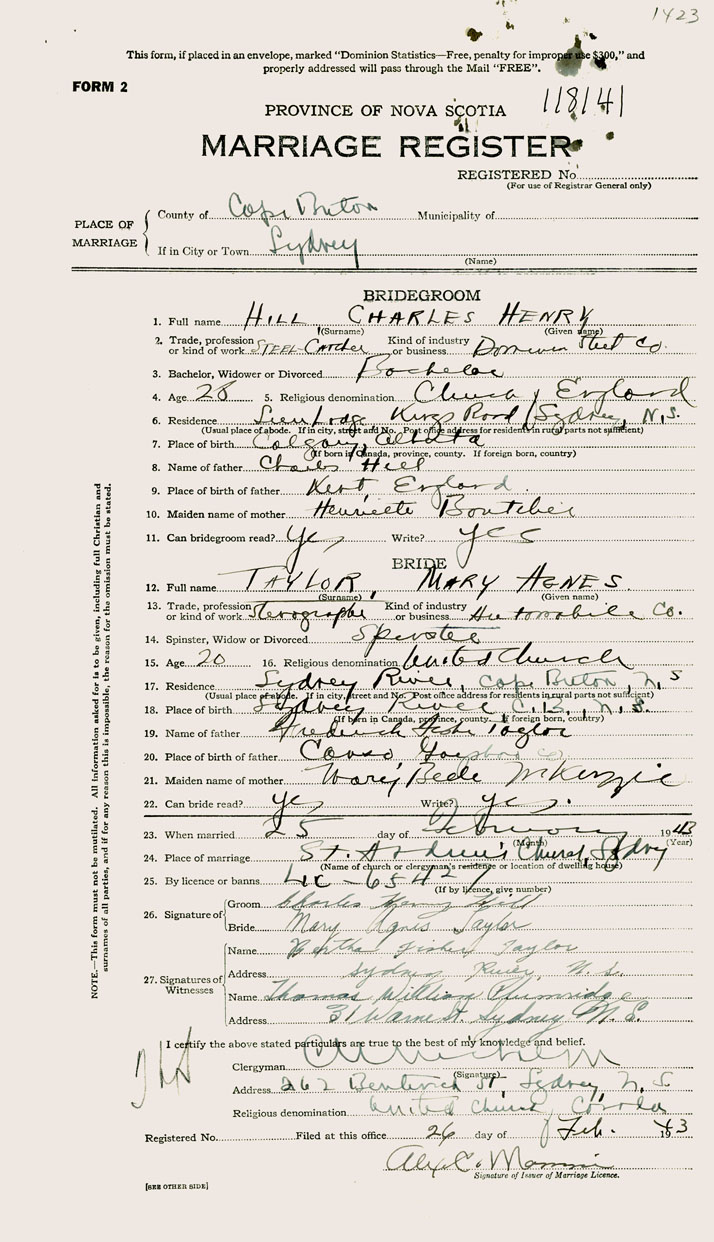 1423
This form, if placed in an envelope, marked "Dominion Statistics—Free, penalty for improper use $300," and
properly addressed will pass through the Mail "FREE".
FORM 2
118141
PROVINCE OF NOVA SCOTIA
MARRIAGE REGISTER
REGISTERED No
(For use of Registrar General only)
PLACE OF MARRIAGE
County of Cape Breton Municipality of
If in City or Town Sydney
(Name)
BRIDEGROOM
1. Full name HILL CHARLES HENRY
(Surname) (Given name)
2. Trade, profession or kind of work STEEL Catcher Kind of industry or business Dominion Steel Co.
3. Bachelor, Widower or Divorced Bachelor
4. Age 28 5. Religious denomination Church of England
6. Residence Lodge Kings Road Sydney, N.S.
(Usual place of abode. If in city, street and No. Post office address for residents in rural parts not sufficient)
7. Place of birth Calgary, Alberta
(If born in Canada, province, county. If foreign born, country)
8. Name of father Charles Hill
9. Place of birth of father Kent England
10. Maiden name of mother Henriette
11. Can bridegroom read? Yes Write? Yes
BRIDE
12. Full name TAYLOR, MARY AGNES.
(Surname) (Given name)
13. Trade, profession or kind of work Stenographer Kind of industry or business Automobile Co.
14. Spinster, Widow or Divorced Spinster
15. Age 20 16. Religious denomination United Church
17. Residence Sydney River, Cape Breton, N.S
(Usual place of abode. If in city, street and No. Post office address for residents in rural parts not sufficient)
18. Place of birth Sydney River C.B., N.S.
(If born in Canada, province, county. If foreign born, country)
19. Name of father Frederick Taylor
20. Place of birth of father Canso Guysboro Co
21. Maiden name of mother Mary Bede McKenzie
22. Can bride read? Yes Write? Yes.
23. When married 25 day of February 1943
(Month) (Year)
24. Place of marriage St. Andrew's Church, Sydney
(Name of church or clergyman's residence or location of dwelling house)
25. By licence or banns Lic - 65427
(If by licence, give number)
26. Signature of
Groom Charles Henry Hill
Bride Mary Agnes Taylor
27. Signatures of Witnesses
Name Bertha Fisher Taylor
Address Sydney River, N.S.
Name Thomas William Plumridge
Address 31 Warne St. Sydney N.S.
I certify the above stated particulars are true to the best of my knowledge and belief.
Clergyman
(Signature)
Address 262 Bentinck St, Sydney, N.S
Religious denomination United Church, Canada
Registered No. Filed at this office 26 day of Feb. 1943
Alex C.
Signature of Issuer of Marriage Licence.
[SEE OTHER SIDE]
NOTE.—This form must not be mutilated. All information asked for is to be given, including full Christian and
surnames of all parties, and if for any reason this is impossible, the reason for the omission must be stated.